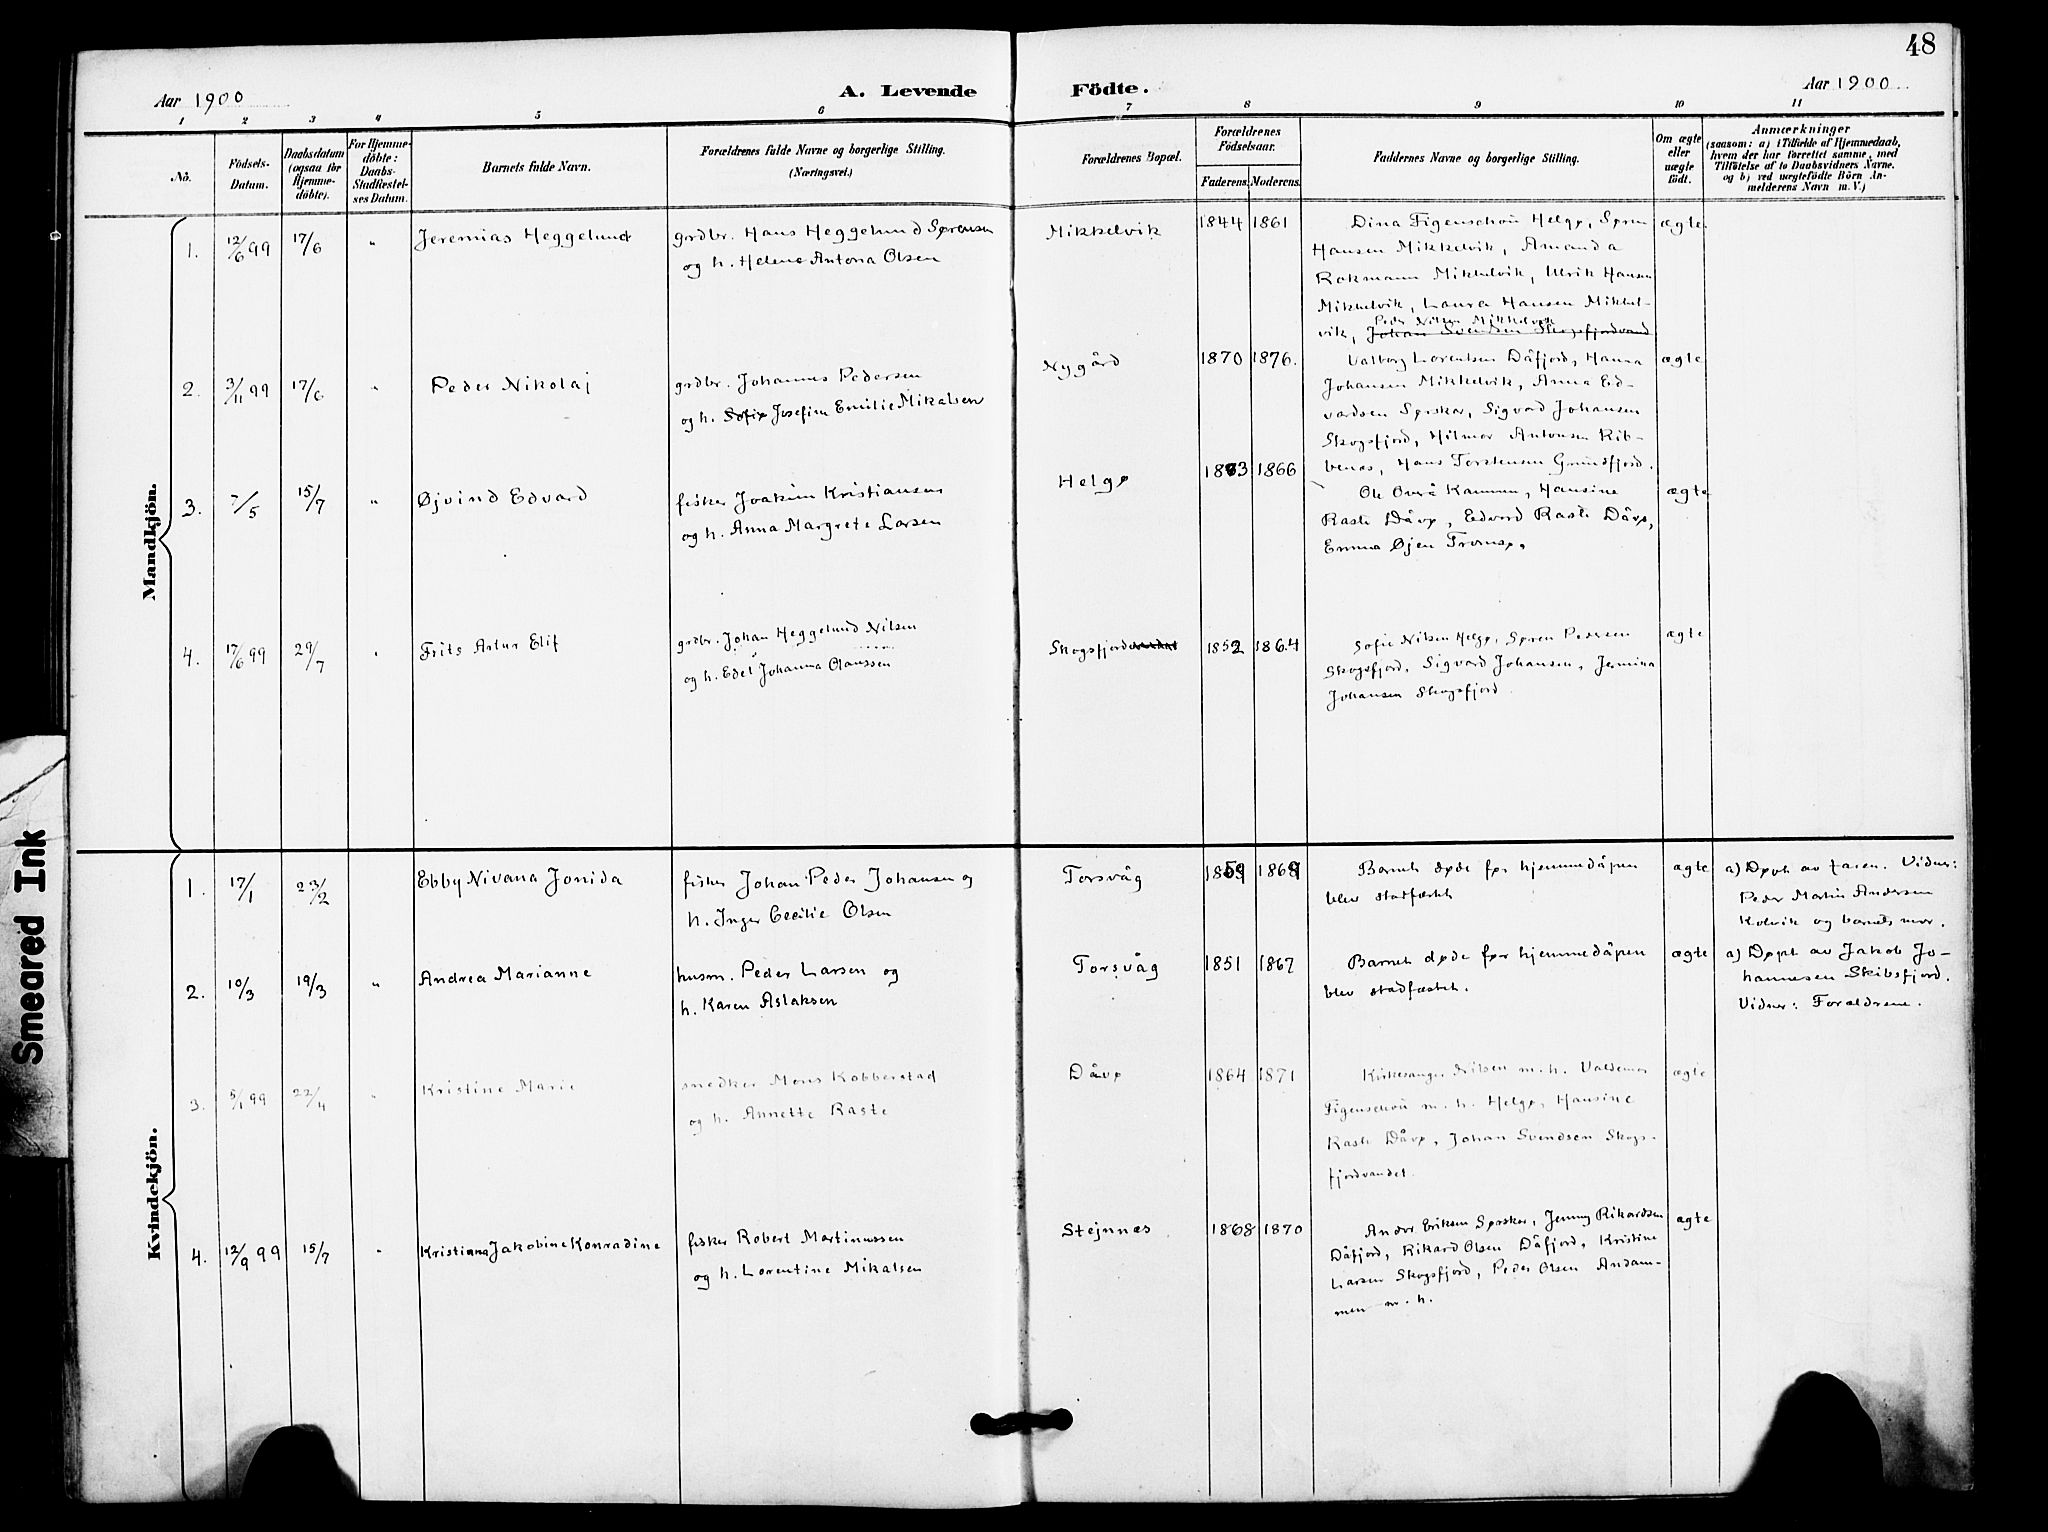 48
Aar 1900
A. Levende Födte.
Aar 1900
1 2 3 4 5 6 7 8 9 10 11
No.
Födsels-
Datum.
Daabsdatum
(ogsaa for
Hjemme-
döbte).
For Hjemme-
döbte:
Daabs-
Stadfæstel-
ses Datum.
Barnets fulde Navn.
Forældrenes fulde Navne og borgerlige Stilling.
(Næringsvei.)
Forældrenes Bopæl.
Forældrenes
Födselsaar.
Faderens. Moderens.
Faddernes Navne og borgerlige Stilling.
Om ægte
eller
uægte
födt.
Anmærkninger
(saasom: a) i Tilfælde af Hjemmedaab,
hvem der har forrettet samme, med
Tilföielse af to Daabsvidners Navne.
og b) ved uægtefödte Börn An-
melderens Navn m. V.)
Mandkjön.
1. 12/6 99 17/6 " Jeremias Heggelund
grdbr. Hans Heggelund Sørensen
og h. Helene Antona Olsen
Mikkelvik 1844 1861
Dina Figenschou Helgø, Søren
Hansen Mikkelvik, Amanda
Rokmann Mikkelvik, Ulrik Hansen
Mikkelvik, Laura Hansen Mikkel-
Peder Nilsen Mikkelvik
vik, Johan Svendsen Skogsfjordvand
ægte
2. 3/11 99 17/6 " Peder Nikolaj
grdbr. Johannes Pedersen
og h. Sofie Josefine Emilie Mikalsen
Nygård 1870 1876.
Valborg Lorentsen Dåfjord, Hanna
Johansen Mikkelvik, Anna Ed-
vardsen Sørskar, Sigvard Johansen
Skogsfjord, Hilmar Antonsen Rib-
benes, Hans Torstensen Grundfjord.
ægte
3. 7/5 15/7 " Øjvind Edvard
fisker Joakim Kristiansen
og h. Anna Margrete Larsen
Helgø 1863 1866
Ole Overå Kammen, Hansine
Raste Dåvø, Edvard Raste Dåvø,
Emma Øjen Tromsø.
ægte
4. 17/6 99 29/7 " Frits Artur Elif
grdbr. Johan Heggelund Nilsen
og h. Edel Johanna Olaussen
Skogsfjordvandet 1852 1864
Sofie Nilsen Helgø, Søren Pedersen
Skogsfjord, Sigvard Johansen, Jermina
Johansen Skogsfjord.
ægte
Kvindekjön.
1. 17/1 23/2 Ebby Nivana Jonida
fisker Johan Peder Johansen og
h. Inger Cecilie Olsen
Torsvåg 1859 1869
Barnet døde før hjemmedåpen
blev stadfæstet
ægte
a) Døpt av faren. Vidner:
Peder Martin Andersen
Kolvik og barnets mor.
2. 10/3 19/3 " Andrea Marianne
husm. Peder Larsen og
h. Karen Aslaksen
Torsvåg 1851 1867
Barnet døde før hjemmedåpen
blev stadfæstet.
ægte
a) Døpt av Jakob Jo-
hannesen Skibsfjord.
Vidner: Forældrene.
3. 5/1 99 22/4 " Kristine Marie
snedker Mons Kobberstad
og h. Annette Raste
Dåvø 1864 1871
Kirkesanger Nilsen m. h. Valdemar
Figenschou m. h. Helgø, Hansine
Raste Dåvø, Johan Svendsen Skogs-
fjordvandet.
ægte
4. 12/9 99 15/7 " Kristiana Jakobine Konradine
fisker Robert Martinussen
og h. Lorentine Mikalsen
Stejnnæs 1868 1870
Andor Eriksen Sørskar, Jenny Rikardsen
Dåfjord, Rikard Olsen Dåfjord, Kristine
Larsen Skogsfjord, Peder Olsen Andam-
men m. h.
ægte
Smeared Ink